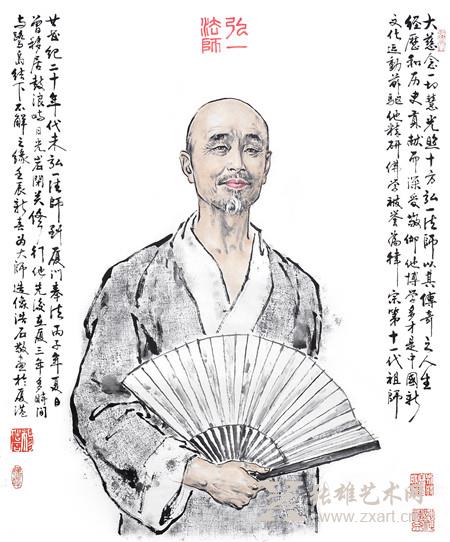 弘一
法師
大慈念一切慧光照十方弘一法師以其傳奇之人生
经歷和历史貢献而深爱敬仰他博学多才是中國新
文化运動前駆他精研佛学被誉為律宗第十一代祖師
廿世纪二十年代末弘一法師到厦门奉法丙子年夏日
曾移居鼓浪屿日光岩闭关修行他先後在厦三年多時间
与鹭島结下不解之缘壬辰新春为大师造像浩石敬画於厦港
张雄艺术网
www.zxart.cn